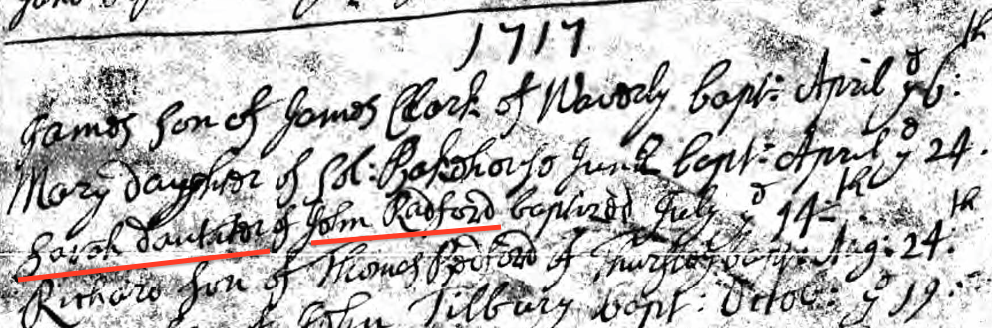 1717
James son of James Clark of Waverly bapt: April ye 6: th
Mary Daughter of Sol: Junr bapt: April ye 24.
Sarah Daughter of John Radford baptized July ye 14th
Richard son of Thomas of bapt: Aug: 24: th
of John Tilbury bapt: Octob: ye 19: